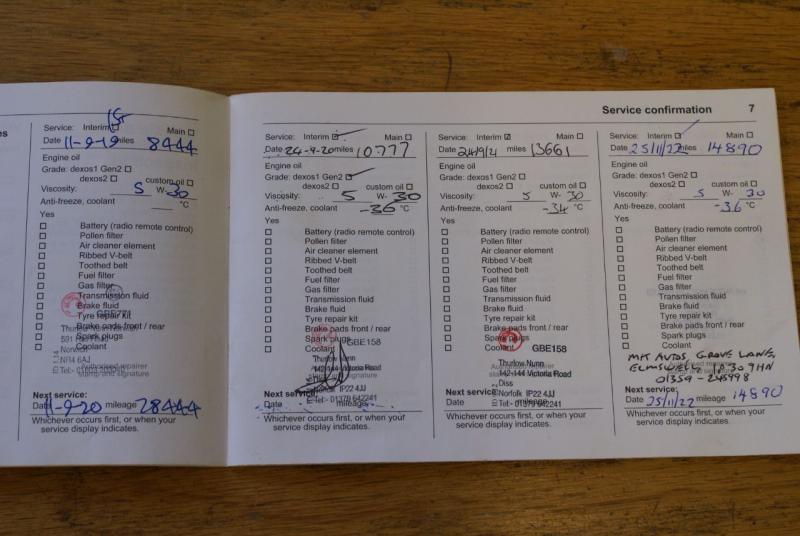 Service confirmation 7
es
1st
Service: Interim Main
Date 11-9-19 miles 8444
Engine oil
Grade: dexos1 Gen2
dexos2 custom oil
Viscosity: 5 W- 30
Anti-freeze, coolant °C
Yes
Battery (radio remote control)
Pollen filter
Air cleaner element
Ribbed V-belt
Toothed belt
Fuel filter
Gas filter
Transmission fluid
Brake fluid
Tyre repair kit
Brake pads front / rear
Spark plugs
Coolant
Norwich
NR14 6AJ
Authorised repairer
stamp and signature
Next service:
Date 11-9-20 mileage 28444
Whichever occurs first, or when your
service display indicates.
Service: Interim Main
Date 24-9-20 miles 10777
Engine oil
Grade: dexos1 Gen2
dexos2 custom oil
Viscosity: 5 W- 30
Anti-freeze, coolant -36 °C
Yes
Battery (radio remote control)
Pollen filter
Air cleaner element
Ribbed V-belt
Toothed belt
Fuel filter
Gas filter
Transmission fluid
Brake fluid
Tyre repair kit
Brake pads front / rear
Spark plugs
Coolant GBE158
Thurlow Nunn
142-144 Victoria Road
IP22 4JJ
Tel:- 01379 642241
Next service:
Date mileage
Whichever occurs first, or when your
service display indicates.
Service: Interim Main
Date 24/9/21 miles 13661
Engine oil
Grade: dexos1 Gen2
dexos2 custom oil
Viscosity: 5 W- 30
Anti-freeze, coolant -34 °C
Yes
Battery (radio remote control)
Pollen filter
Air cleaner element
Ribbed V-belt
Toothed belt
Fuel filter
Gas filter
Transmission fluid
Brake fluid
Tyre repair kit
Brake pads front / rear
Spark plugs
Coolant GBE158
Thurlow Nunn
142-144 Victoria Road
Diss
Norfolk IP22 4JJ
Tel:- 01379 642241
Next service:
Date mileage
Whichever occurs first, or when your
service display indicates.
Service: Interim Main
Date 25/11/22 miles 14890
Engine oil
Grade: dexos1 Gen2
dexos2 custom oil
Viscosity: 5 W- 30
Anti-freeze, coolant -36 °C
Yes
Battery (radio remote control)
Pollen filter
Air cleaner element
Ribbed V-belt
Toothed belt
Fuel filter
Gas filter
Transmission fluid
Brake fluid
Tyre repair kit
Brake pads front / rear
Spark plugs
Coolant
MK AUTOS, GROVE LANE,
ELMSWELL IP30 9HN
01359-245998
Next service:
Date 25/11/22 mileage 14890
Whichever occurs first, or when your
service display indicates.